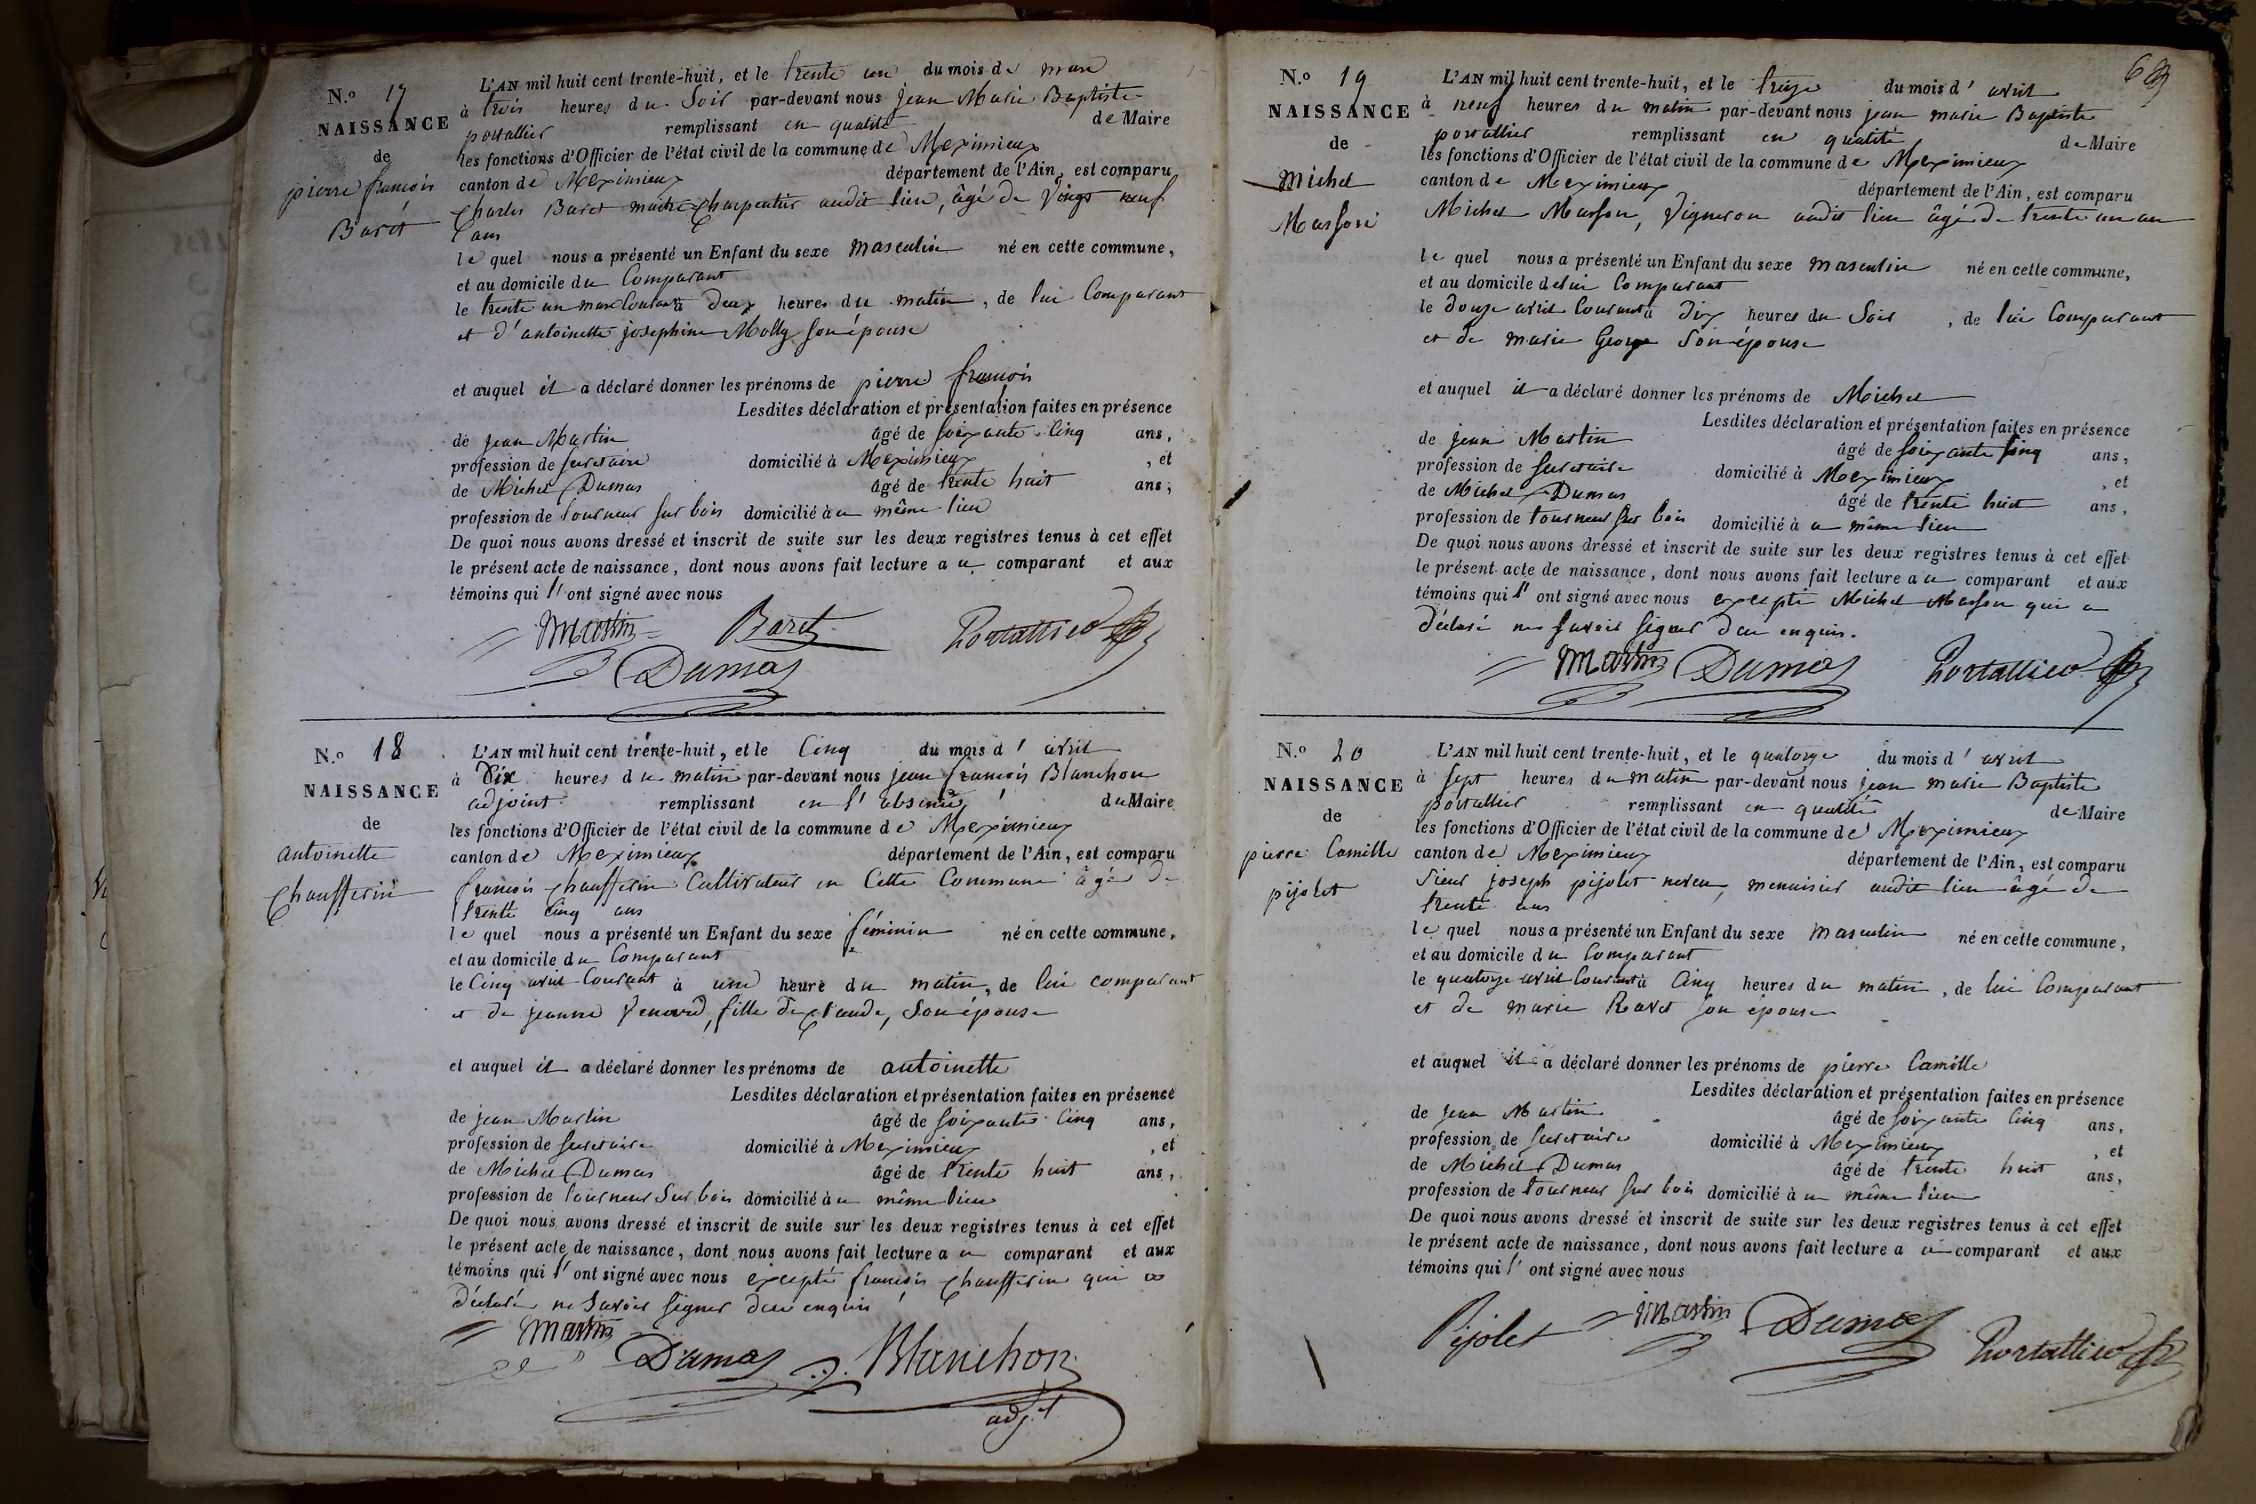 N.º 17
NAISSANCE
de
pierre françois
Baret
L'AN mil huit cent trente-huit, et le trente un du mois de mars
à trois heures du Soir par-devant nous jean Marie Baptiste
portallier remplissant en qualité de Maire
les fonctions d'Officier de l'état civil de la commune de Meximieux
canton de Meximieux département de l'Ain, est comparu
Charles Baret maitre Charpentier audit lieu, âgé de Vingt neuf
ans
le quel nous a présenté un Enfant du sexe masculin né en cette commune,
et au domicile du Comparant
le trente un mars Courant à deux heures du matin, de lui Comparant
et d'antoinette josephine Molly son épouse
et auquel il a déclaré donner les prénoms de pierre françois
Lesdites déclaration et présentation faites en présence
de jean Martin âgé de soixante Cinq ans,
profession de Secretaire domicilié à Meximieux, et
de Michel Dumas âgé de trente huit ans,
profession de tourneur sur bois domicilié à u même lieu
De quoi nous avons dressé et inscrit de suite sur les deux registres tenus à cet effet
le présent acte de naissance, dont nous avons fait lecture a u comparant et aux
témoins qui l' ont signé avec nous
Martin Baret Portallier
Dumas
N.º 18
NAISSANCE
de
antoinette
Chaufferin
L'AN mil huit cent trente-huit, et le Cinq du mois d' avril
à Dix heures du matin par-devant nous jean françois Blanchon
adjoint remplissant en l'absence du Maire
les fonctions d'Officier de l'état civil de la commune de Meximieux
canton de Meximieux département de l'Ain, est comparu
françois Chaufferin Cultivateur en Cette Commune âgé de
trente cinq ans
le quel nous a présenté un Enfant du sexe féminin né en cette commune,
et au domicile du Comparant
le Cinq avril Courant à une heure du matin, de lui comparant
et de jeanne fille de Claude, Son épouse
et auquel il a déclaré donner les prénoms de antoinette
Lesdites déclaration et présentation faites en présence
de jean Martin âgé de soixante Cinq ans,
profession de Secretaire domicilié à Meximieux, et
de Michel Dumas âgé de trente huit ans,
profession de tourneur Sur bois domicilié à u même lieu
De quoi nous avons dressé et inscrit de suite sur les deux registres tenus à cet effet
le présent acte de naissance, dont nous avons fait lecture a u comparant et aux
témoins qui l' ont signé avec nous excepté françois Chaufferin qui a
déclaré ne Savoir Signer de ce enquis
Martin
Dumas J. Blanchon
adj.t
669
N.º 19
NAISSANCE
de
Michel
Masson
L'AN mil huit cent trente-huit, et le treize du mois d' avril
à neuf heures du matin par-devant nous jean marie Baptiste
portallier remplissant en qualité de Maire
les fonctions d'Officier de l'état civil de la commune de Meximieux
canton de Meximieux département de l'Ain, est comparu
Michel Masson, Vigneron audit lieu âgé de trente un an
le quel nous a présenté un Enfant du sexe masculin né en cette commune,
et au domicile de lui Comparant
le douze avril Courant à dix heures du Soir, de lui Comparant
et de marie George Son épouse
et auquel il a déclaré donner les prénoms de Michel
Lesdites déclaration et présentation faites en présence
de jean Martin âgé de soixante Cinq ans,
profession de Secretaire domicilié à Meximieux, et
de Michel Dumas âgé de trente huit ans,
profession de tourneur sur bois domicilié à u même lieu
De quoi nous avons dressé et inscrit de suite sur les deux registres tenus à cet effet
le présent acte de naissance, dont nous avons fait lecture a u comparant et aux
témoins qui l' ont signé avec nous excepté Michel Masson qui a
déclaré ne Savoir signer de ce enquis.
Martin Dumas Portallier
N.º 20
NAISSANCE
de
pierre Camille
pijolet
L'AN mil huit cent trente-huit, et le quatorze du mois d' avril
à sept heures du matin par-devant nous jean marie Baptiste
portallier remplissant en qualité de Maire
les fonctions d'Officier de l'état civil de la commune de Meximieux
canton de Meximieux département de l'Ain, est comparu
Sieur joseph pijolet neveu, menuisier audit lieu âgé de
trente ans
le quel nous a présenté un Enfant du sexe masculin né en cette commune,
et au domicile du Comparant
le quatorze avril Courant à Cinq heures du matin, de lui Comparant
et de marie Ravet son épouse
et auquel il a déclaré donner les prénoms de pierre Camille
Lesdites déclaration et présentation faites en présence
de jean Martin âgé de soixante Cinq ans,
profession de Secretaire domicilié à Meximieux, et
de Michel Dumas âgé de trente huit ans,
profession de tourneur sur bois domicilié à u même lieu
De quoi nous avons dressé et inscrit de suite sur les deux registres tenus à cet effet
le présent acte de naissance, dont nous avons fait lecture a u comparant et aux
témoins qui l' ont signé avec nous
Pijolet Martin Dumas Portallier